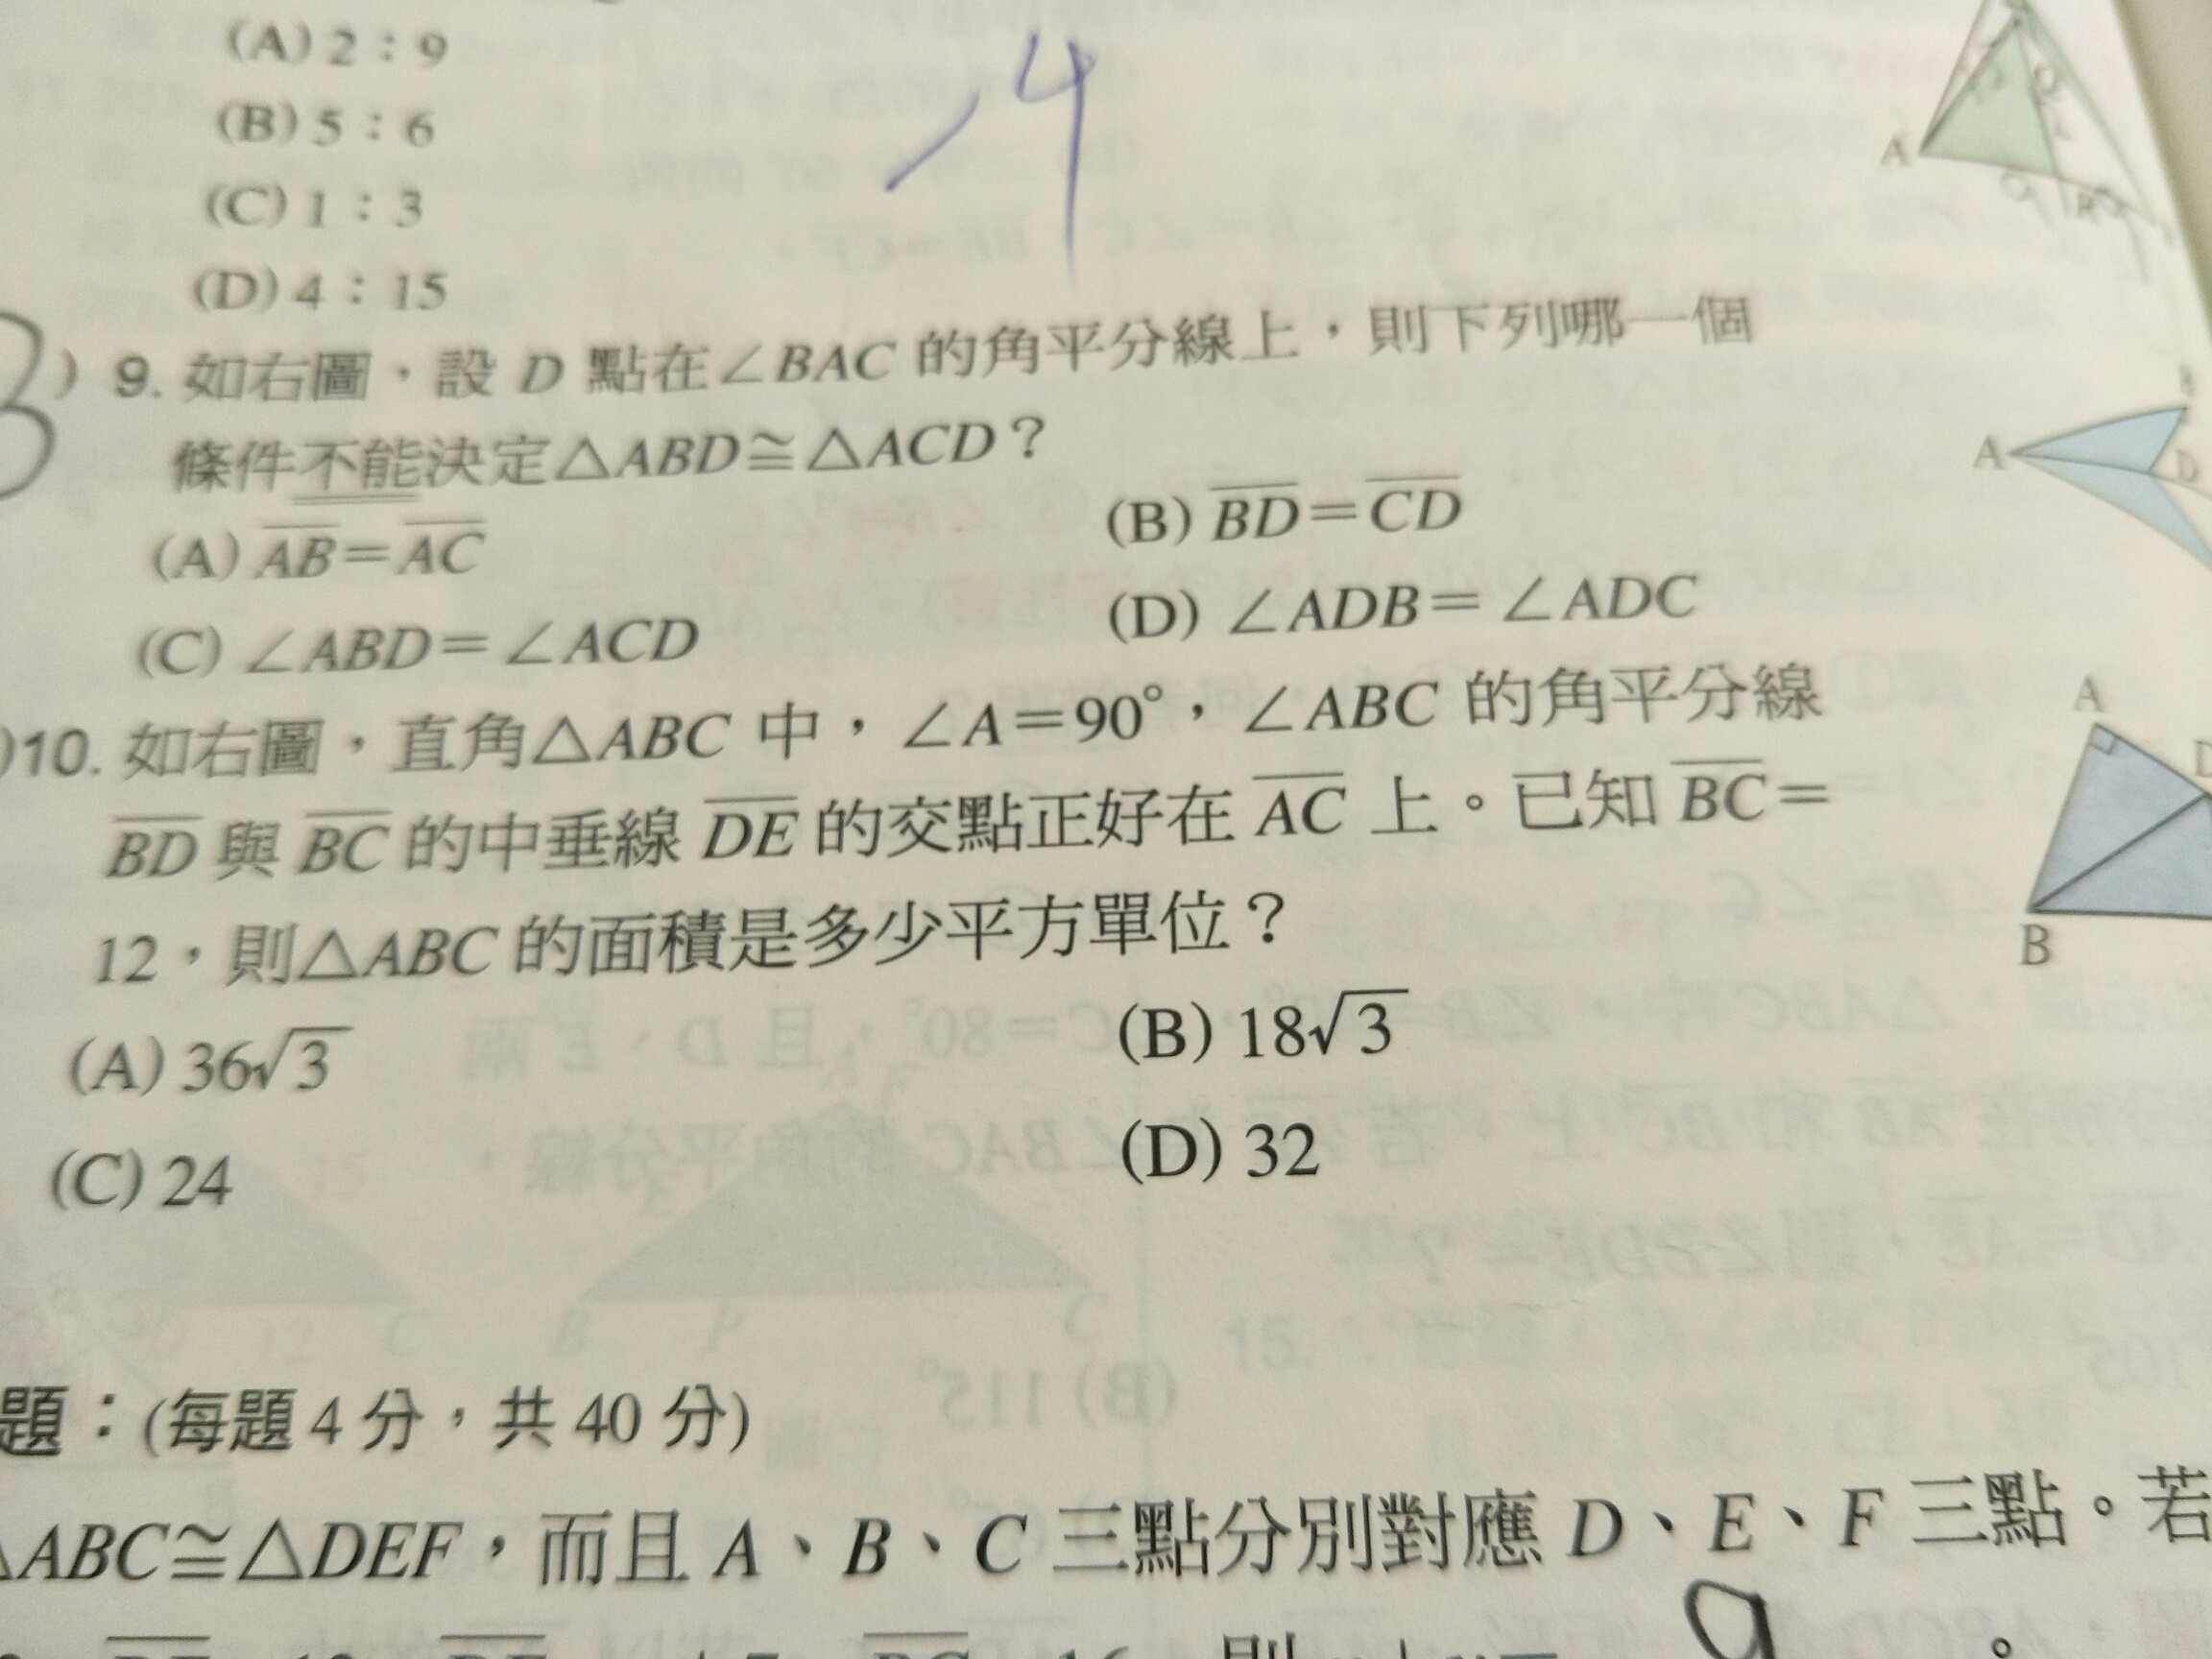 (A) 2：9
(B) 5：6
(C) 1：3
(D) 4：15
4
A
9. 如右圖，設 D 點在∠BAC 的角平分線上，則下列哪一個
條件不能決定△ABD≅△ACD？
(A) AB=AC
(B) BD=CD
(C) ∠ABD=∠ACD
(D) ∠ADB=∠ADC
A
D
10. 如右圖，直角△ABC 中，∠A=90°，∠ABC 的角平分線
BD 與 BC 的中垂線 DE 的交點正好在 AC 上。已知 BC=
12，則△ABC 的面積是多少平方單位？
(A) 36√3
(B) 18√3
(C) 24
(D) 32
A
D
B
題：(每題 4 分，共 40 分)
△ABC≅△DEF，而且 A、B、C 三點分別對應 D、E、F 三點。若